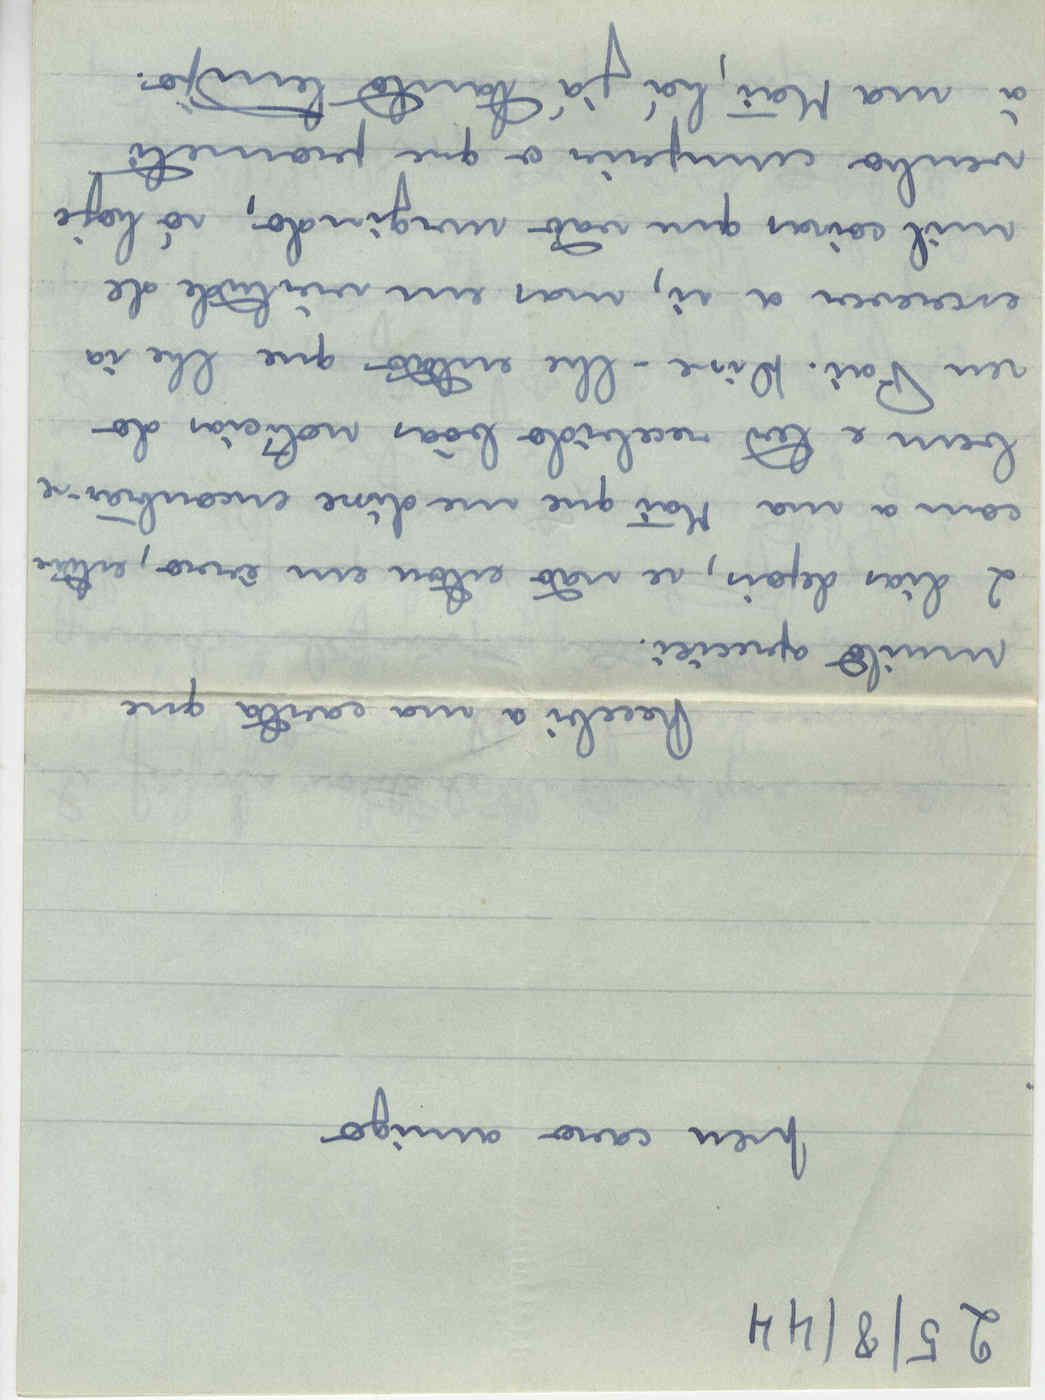 25/8/44
Meu caro amigo
Recebi a sua carta que
muito apreciei.
2 dias depois, se não estou em êrro, estive
com a sua Mãi que me disse encontrar-se
bem e ter recebido bôas notícias do
seu Pai. Disse-lhe então que lhe ia
escrever a si, mas em virtude de
mil coisas que vão surgindo, só hoje
venho cumprir o que prometi
à sua Mãi, há já tanto tempo.